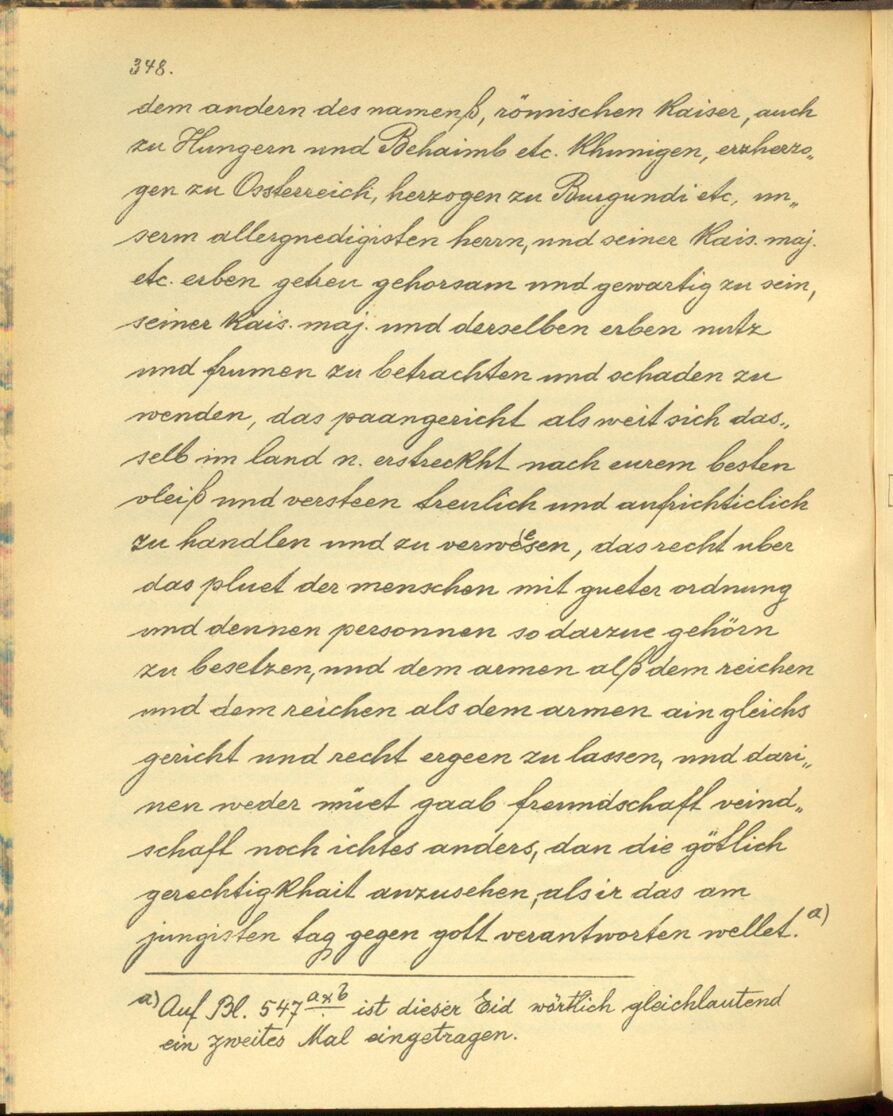 348.
dem andern des namenß, römischen Kaiser, auch
zu Hungern und Behaimb etc. Khunigen, erzherzo„
gen zu Ossterreich, herzogen zu Burgundi etc, un„
serm allergnedigisten herrn, und seiner Kais. maj.
etc. erben getreu gehorsam und gewartig zu sein,
seiner Kais. maj. und derselben erben nutz
und frumen zu betrachten und schaden zu
wenden, das paangericht als weit sich das„
selb im land n. erstreckht nach eurem besten
vleiß und versteen treulich und aufrichticlich
zu handlen und zu verwesen, das recht uber
das pluet der menschen mit gueter ordnung
und dennen personnen so darzue gehörn
zu besetzen, und dem armen alß dem reichen
und dem reichen als dem armen ain gleichs
gericht und recht ergeen zu lassen, und dari„
nen weder müet gaab freundschaft veind„
schaft noch ichtes anders, dan die götlich
gerechtigkhait anzusehen, als ir das am
jungisten tag gegen gott verantworten wellet. a)
a) Auf Bl. 547 a x b ist dieser Eid wörtlich gleichlautend
ein zweites Mal eingetragen.